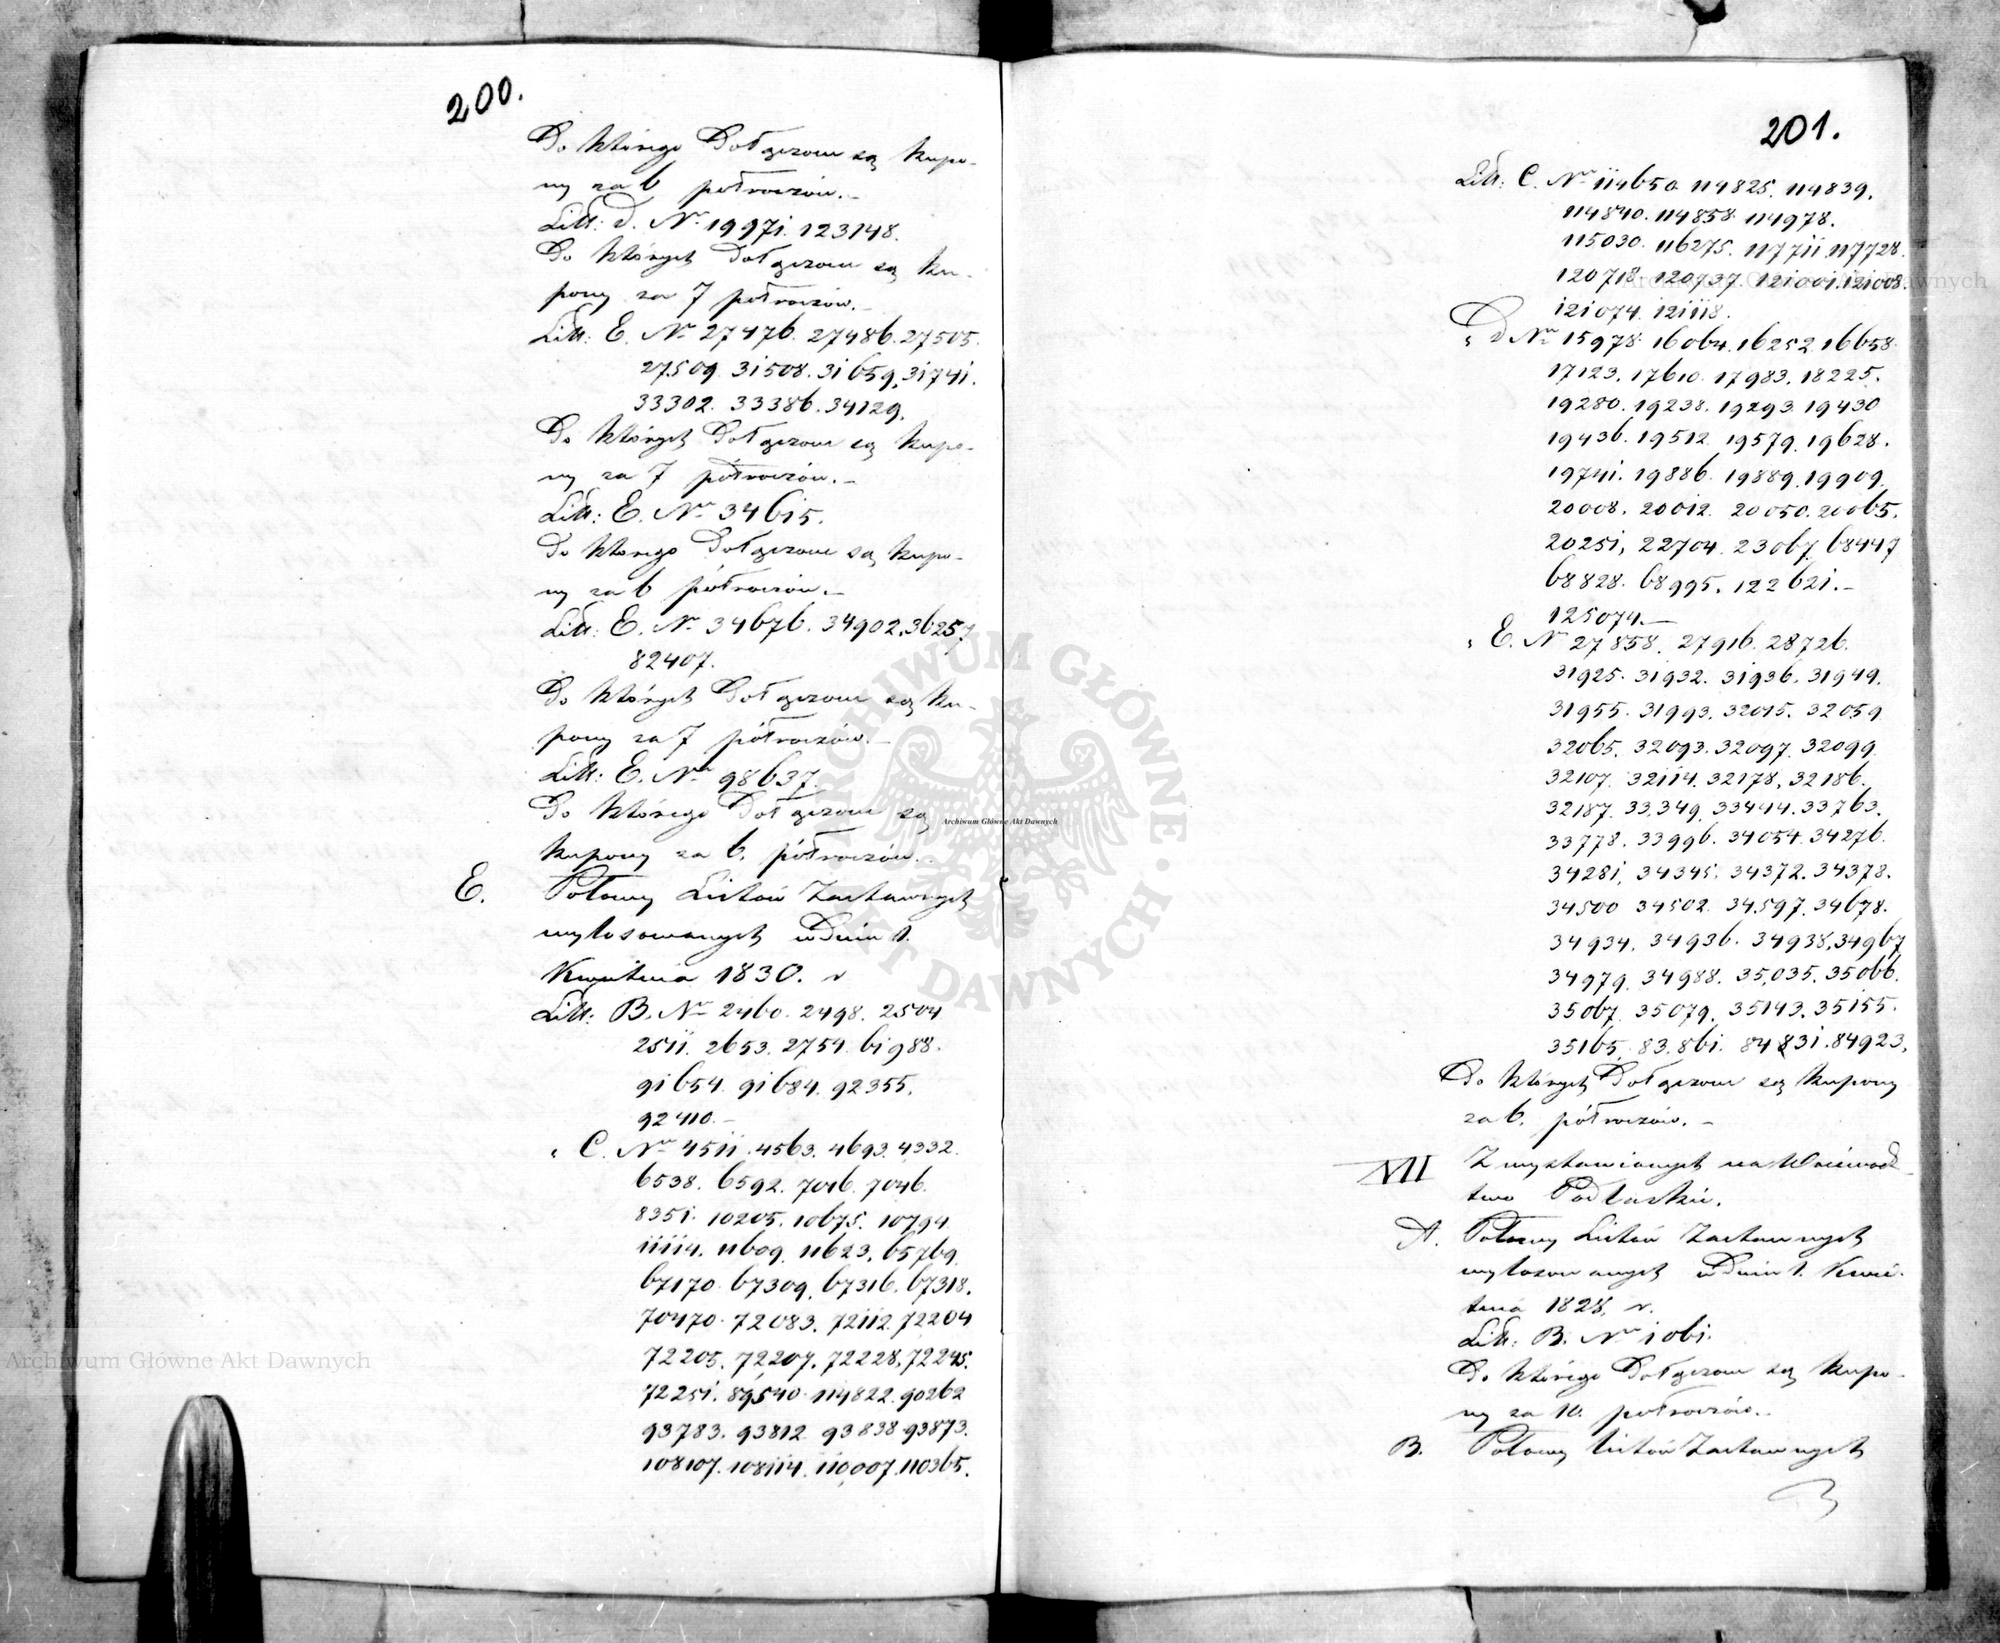 200.
Do którego Dołączone są kupo-
ny za 6 półroczów.-
Litt: D. Nr 19971. 123148.
Do których Dołączone są Ku-
pony za 7 półroczów.-
Litt: E. Nr 27476. 27486. 27505.
27509. 31508. 31659. 31741.
33302. 33386. 34129.
Do których Dołączone są kupo-
ny za 7 półroczów.-
Litt: E. Nr 34615.
Do którego Dołączone są kupo-
ny za 6 półroczów.-
Litt: E. Nr 34676. 34902. 36257.
82407.
Do których Dołączone są Ku-
pony za 7 półroczów.-
Litt: E. Nr 98637.
Do którego Dołączone są
kupony za 6. półroczów.-
E. Połowy Listów Zastawnych
wylosowanych w Dniu 1.
Kwietnia 1830. r
Litt: B. Nr 2460. 2498. 2504
2511. 2653. 2754. 61988.
91654. 91684. 92355.
92410.-
" C. Nr 4511. 4563. 4693. 4332.
6538. 6592. 7016. 7046.
8351. 10205. 10675. 10794.
11114. 11609. 11623. 65769.
67170. 67309. 67316. 67318.
70470. 72083. 72112. 72204
72205. 72207. 72228. 72245.
72251. 89540. 114822. 90262
93783. 93812. 93838. 93873.
108107. 108114. 110007. 110365.
201.
Litt: C. Nr 114650. 114825. 114839.
114840. 114858. 114978.
115030. 116275. 117711. 117728.
120718. 120737. 121001. 121008.
121074. 121118.
" D Nr 15978. 16064. 16252. 16658.
17123. 17610. 17983. 18225.
19280. 19238. 19293. 19430
19436. 19512. 19579. 19628.
19741. 19886. 19889. 19909.
20008. 20012. 20050. 20065.
20251, 22704. 23067. 68447
68828. 68995. 122621.-
125074.-
" E. Nr 27858. 27916. 28726.
31925. 31932. 31936. 31949.
31955. 31993. 32015. 32059
32065. 32093. 32097. 32099
32107. 32114. 32178. 32186.
32187. 33349. 33444. 33763.
33778. 33996. 34054. 34276.
34281. 34345. 34372. 34378.
34500 34502. 34597. 34678.
34934. 34936. 34938. 34967
34979. 34988. 35035. 35066.
35067. 35079. 35143. 35155.
35165. 83861. 84831. 84923.
Do których Dołączone są kupony
za 6. półroczów.-
VII Z wystawionych na Wojewódz-
two Podlaskie.
A. Połowy Listów Zastawnych
wylosowanych w Dniu 1. Kwie-
tnia 1828. r.
Litt: B. Nr 1061.
Do którego Dołączone są kupo-
ny za 10. półroczów.-
B. Połowy Listów Zastawnych
Archiwum Główne Akt Dawnych
Archiwum Główne Akt Dawnych
Archiwum Główne Akt Dawnych
ARCHIWUM GŁÓWNE AKT DAWNYCH